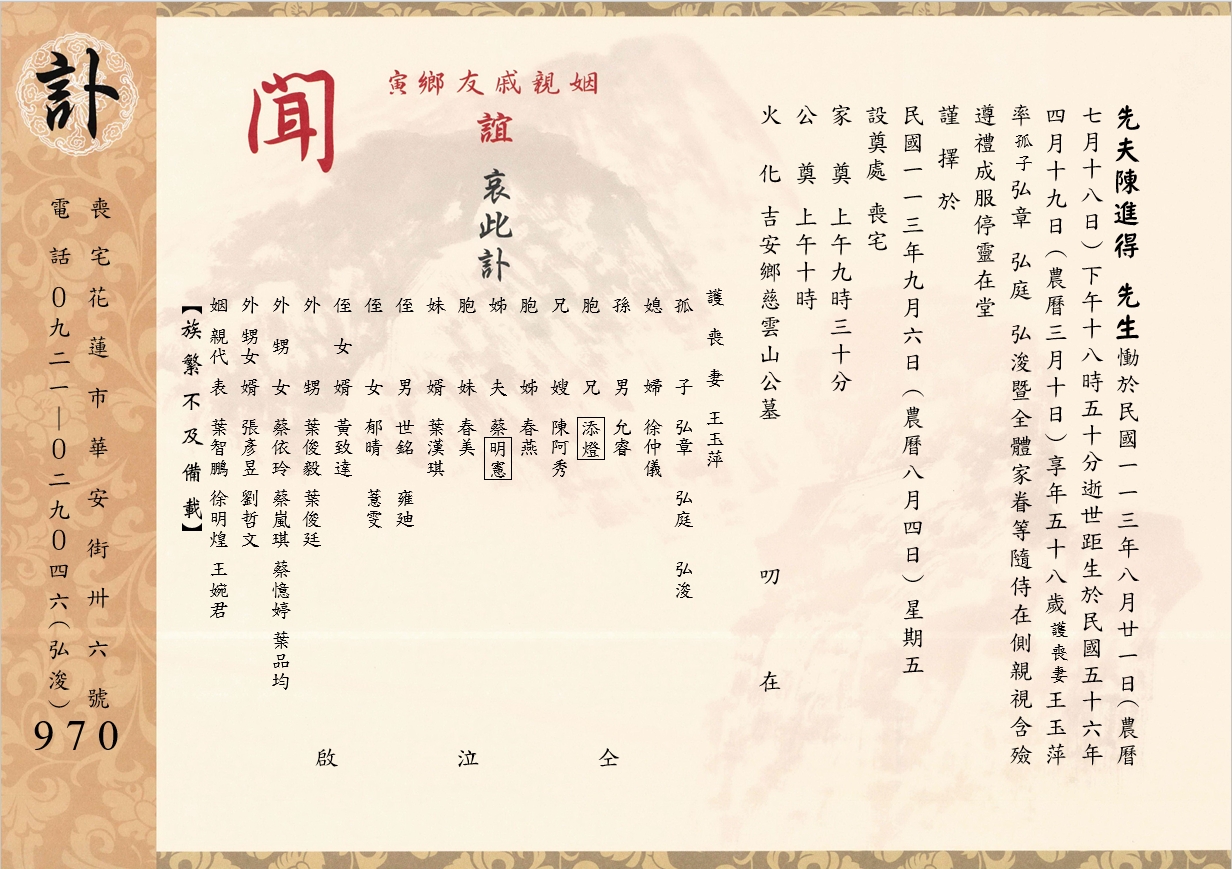 先夫陳進得 先生慟於民國一一三年八月廿一日（農曆
七月十八日）下午十八時五十分逝世距生於民國五十六年
四月十九日（農曆三月十日）享年五十八歲護喪妻王玉萍
率孤子弘章 弘庭 弘浚暨全體家眷等隨侍在側親視含殮
遵禮成服停靈在堂
謹擇於
民國一一三年九月六日（農曆八月四日）星期五
設奠處 喪宅
家奠 上午九時三十分
公奠 上午十時
火化 吉安鄉慈雲山公墓
叨在
姻親戚友鄉寅
誼
哀此訃
聞
護喪妻 王玉萍
孤子 弘章 弘庭 弘浚
媳婦 徐仲儀
孫男 允睿
胞兄 添燈
兄嫂 陳阿秀
胞姊 春燕
姊夫 蔡明憲
胞妹 春美
妹婿 葉漢琪
侄男 世銘 雍迪
侄女 郁晴 薏雯
侄女婿 黃致達
外甥 葉俊毅 葉俊廷
外甥女 蔡依玲 蔡嵐琪 蔡憶婷 葉品均
外甥女婿 張彥昱 劉哲文
姻親代表 葉智鵬 徐明煌 王婉君
【族繁不及備載】
仝泣啟
訃
喪宅花蓮市華安街卅六號
電話０九二一—０二九０四六（弘浚）
970